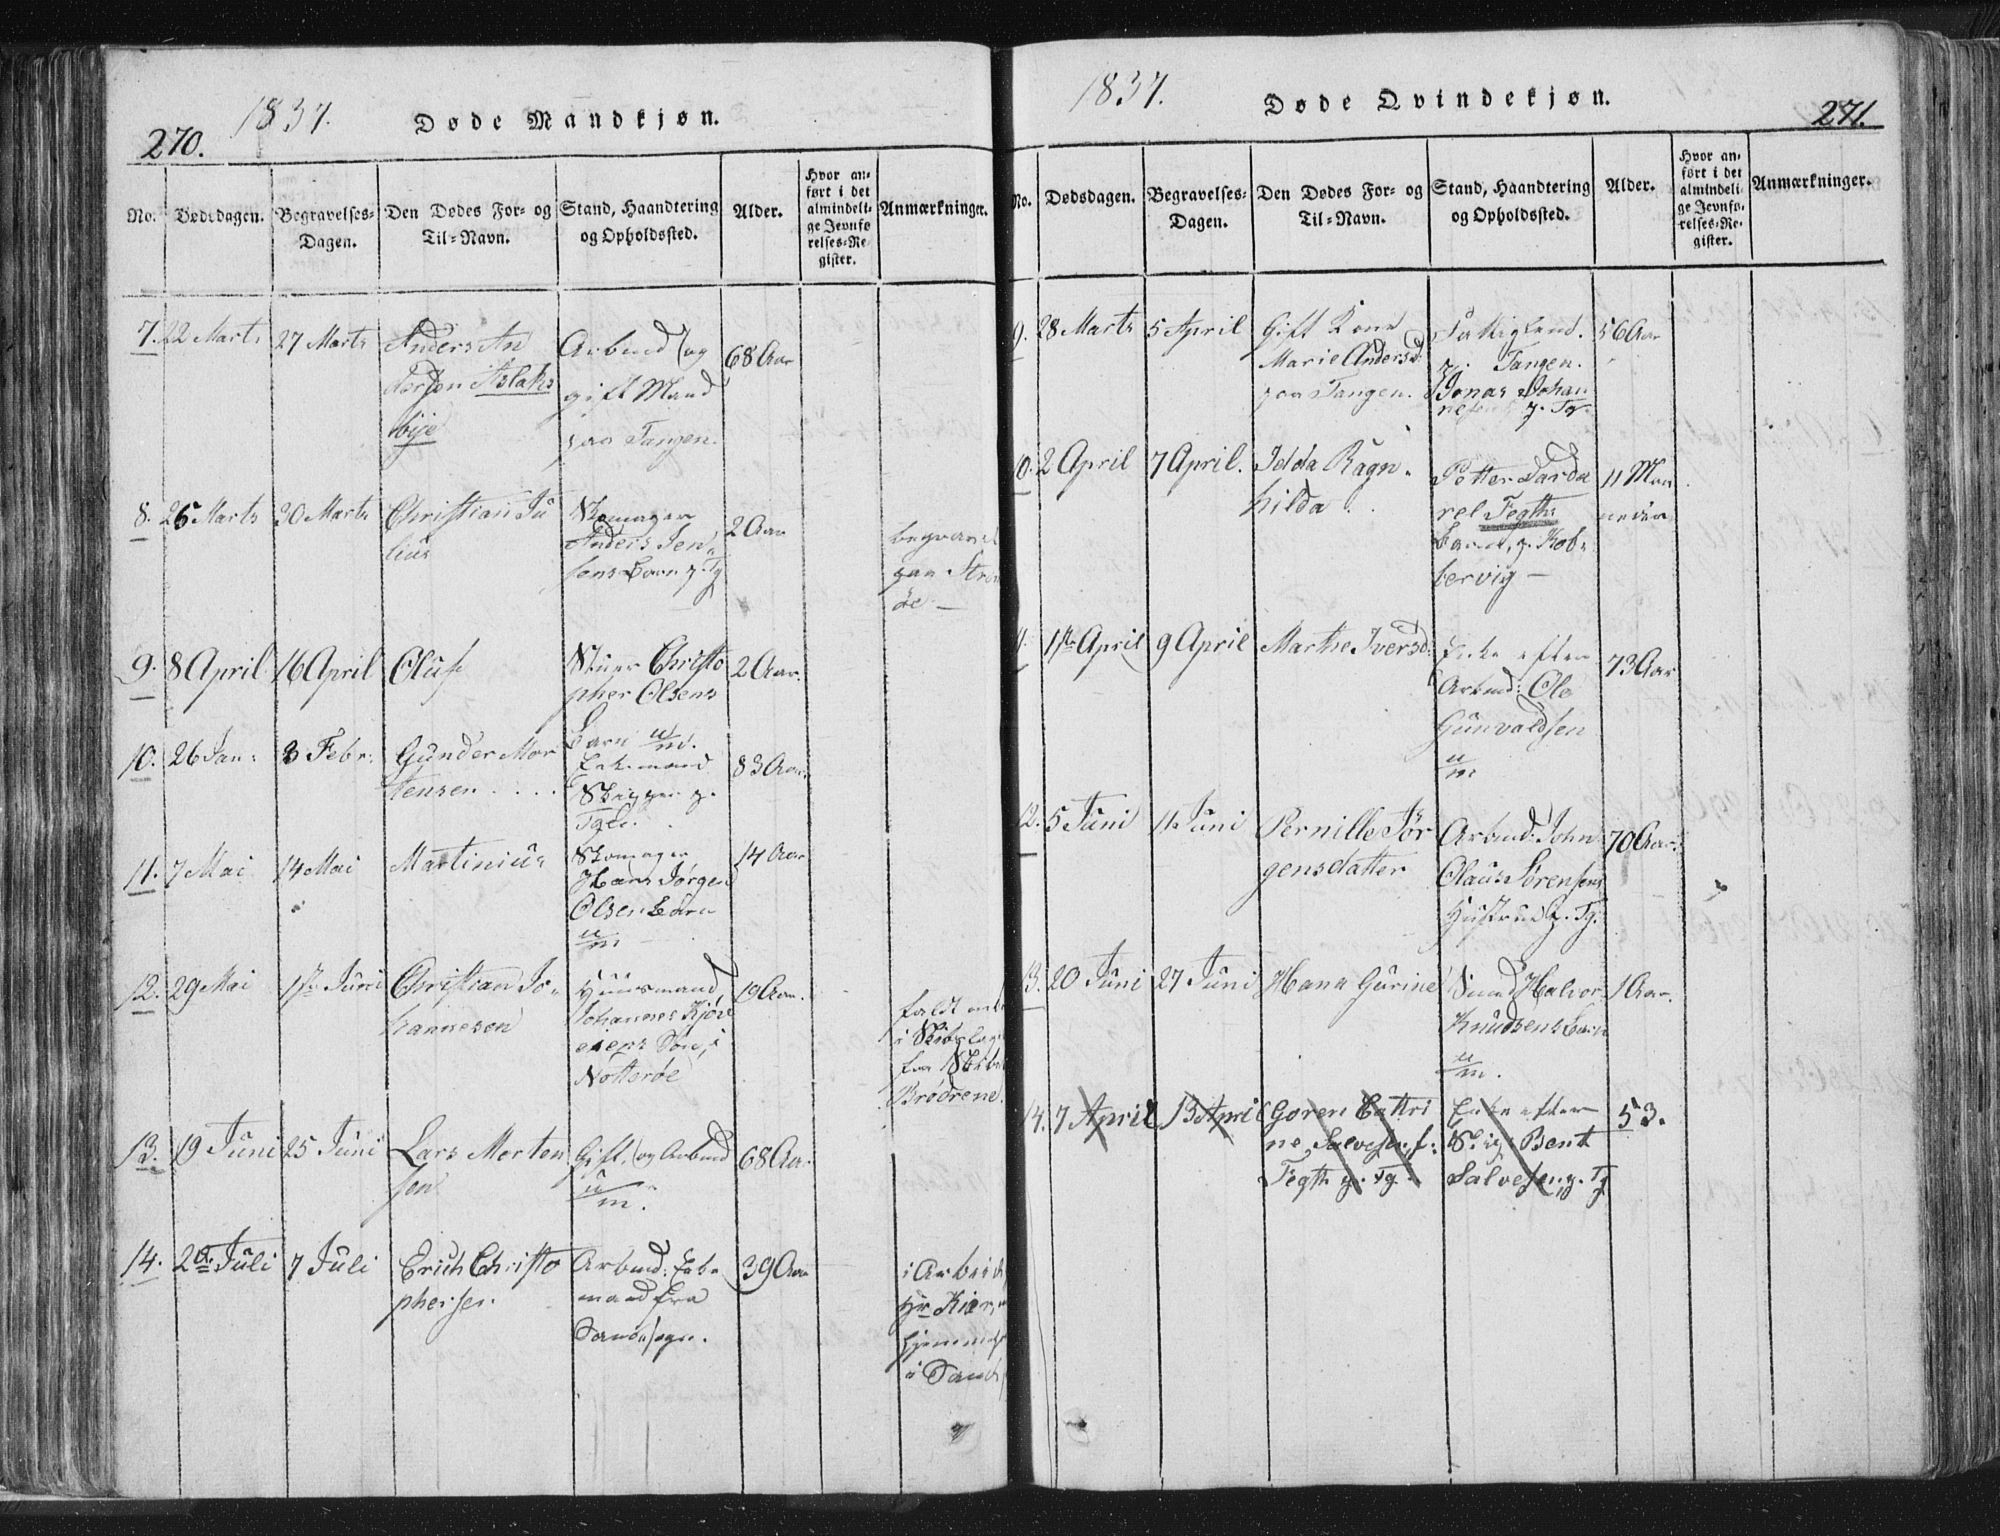 270.
1837.
Døde Mandkjøn.
No.
Dødsdagen.
Begravelses-
Dagen.
Den Dødes For- og
Til-Navn.
Stand, Haandtering
og Opholdssted.
Alder.
Hvor an-
ført i det
almindeli-
ge Jevnfø
relses-Re-
gister.
Anmærkninger.
7.
22 Marts
27 Marts
Anders An
dersen Aslaks
bye
Arbmd og
gift Mand
paa Tangen.
68 Aar
8.
26 Marts
30 Marts
Christian Ju
lius
Skomager
Anders Jen-
sens Barn p. Tg
2 Aar
begravet
paa Strøm
øe —
9.
8 April
16 April
Oluf
Skipr Christo
pher Olsens
Barn u/m.
2 Aar.
10.
26 Jan:
3 Febr.
Gunder Mor
tensen . . . .
Enkemand
Skipper p.
83 Aar.
11.
7 Mai
14 Mai
Martinius
Skomager
Hans Jørgen
Olsens Barn
u/m
14 Aar
12.
29 Mai
1ste Juni
Christian Jo-
hannesen
Huusmand
Johannes
Søn, i
Nøtterøe
19 Aar.
faldt
i
fra Skibet
Brødrene.
13.
19 Juni
25 Juni
Lars Morten
sen
Gift, og Arbmd
u/m.
68 Aar.
14.
2den Juli
7 Juli
Erich Christo
phersen
Arbmd: Enke
mand fra
Sande sogn.
39 Aar
i Arbeid
Hr Kiær,
hjemme
i Sande
1837.
Døde Qvindekjøn.
271.
No.
Dødsdagen.
Begravelses-
Dagen.
Den Dødes For- og
Til-Navn.
Stand, Haandtering
og Opholdssted.
Alder.
Hvor an-
ført i det
almindeli-
ge Jevnfø-
relses-Re-
gister.
Anmærkninger.
9.
28 Marts
5 April
Gift Kone
Marie Andersd:
paa Tangen.
p. Tangen.
Jonas Johan
nesens p. Tg.
56 Aar
10.
2 April
7 April.
Idda Ragn-
hilda .
Petter Tarda
rel Fegths
Barn, p. Kob-
bervig —
11 Maa
neder
11.
1ste April
9 April
Marthe Iversd:
Enke efter
Arbmd: Ole
Gunvaldsen
u/m
73 Aar
12.
5 Juni
11 Juni
Pernille Jør
gensdatter
Arbmd: John
Olaus Sørensens
Hustrue p. Tg.
70 Aar.
13.
20 Juni
27 Juni
Hana Gurine
Smed Halvor
Knudsens Barn
u/m.
1 Aar.
14.
7 April
13 April
Goren Cathri
ne Salvesen, f:
Fegth p. Tg.
Enke efter
Skip: Bent
Salvesen p. Tg
53.